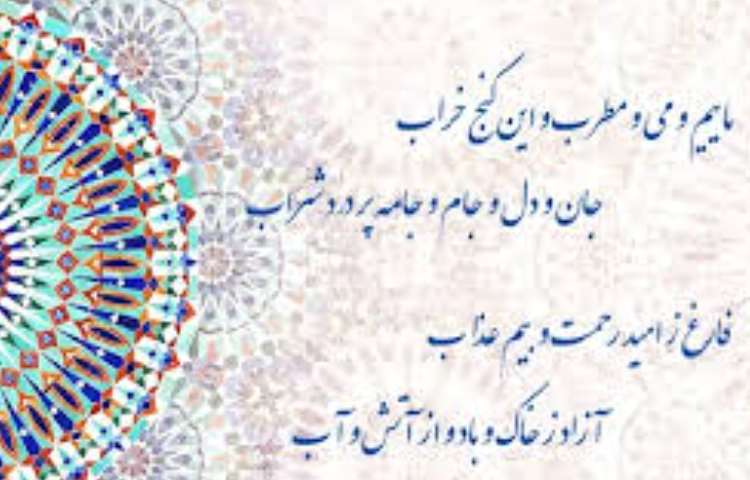 ماییم و می و مطرب و این کنج خراب
جان و دل و جام و جامه پر درد شراب
فارغ ز امید رحمت و بیم عذاب
آزاد ز خاک و باد و از آتش و آب